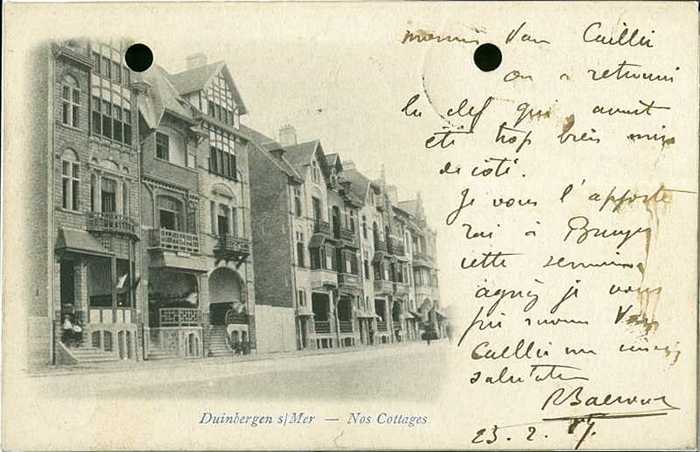 Van Caillie
on a retrouvé
la clef qui avait
été trop bien mise
de côté.
Je vous l'apporte
rai à Bruges
cette semaine
agréez je vous
prie Van
Caillie
salutations
23. 2.
Duinbergen s/Mer — Nos Cottages